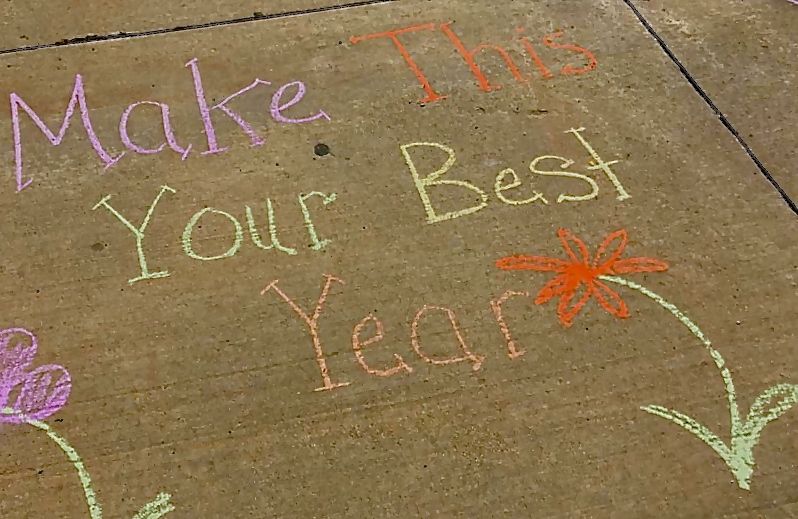 Make This
Your Best
Year